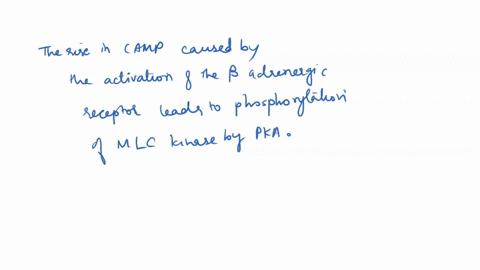 The rise in CAMP caused by
the activation of the β adrenergic
receptor leads to phosphorylation
of MLC kinase by PKA.